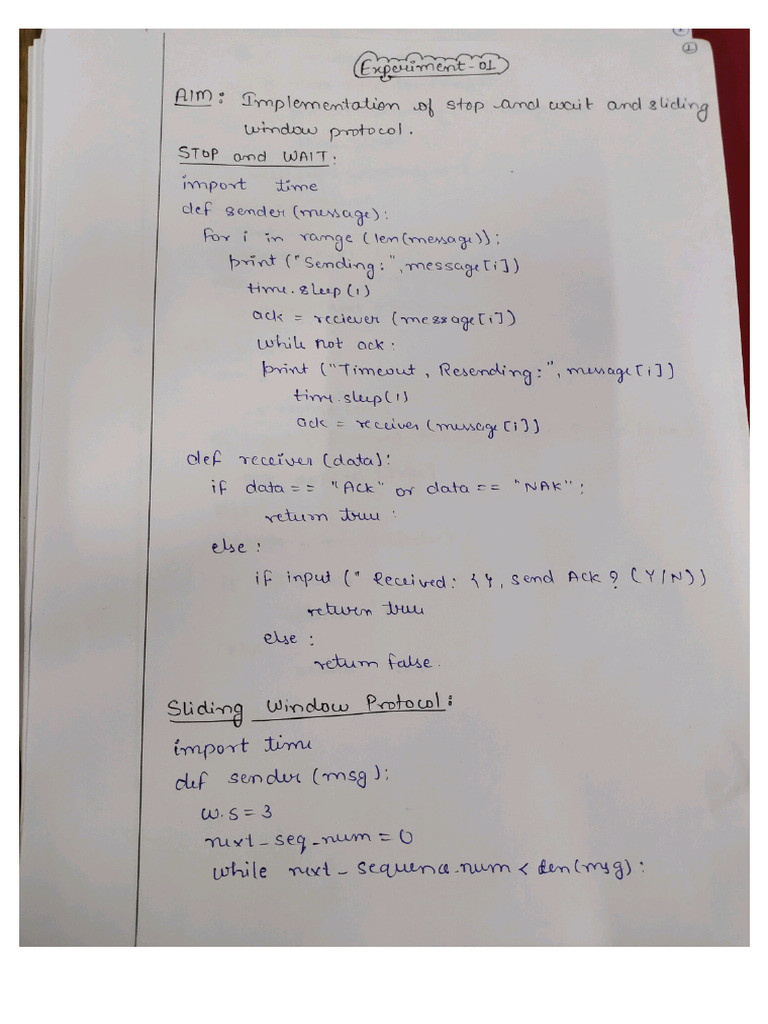 ①
Experiment-01
AIM: Implementation of stop and wait and sliding
window protocol.
STOP and WAIT:
import time
def sender (message):
for i in range (len(message)):
print ("Sending:", message[i])
time.sleep(1)
ack = reciever (message[i])
while not ack:
print ("Timeout, Resending:", message[i])
time.sleep(1)
ack = receiver (message[i])
def receiver (data):
if data == "Ack" or data == "NAK":
return true:
else:
if input (" Received: {}, send Ack? (Y/N))
return true
else:
return false.
Sliding Window Protocol:
import time
def sender (msg):
w.s = 3
next_seq_num = 0
while next_sequence_num < len(msg):